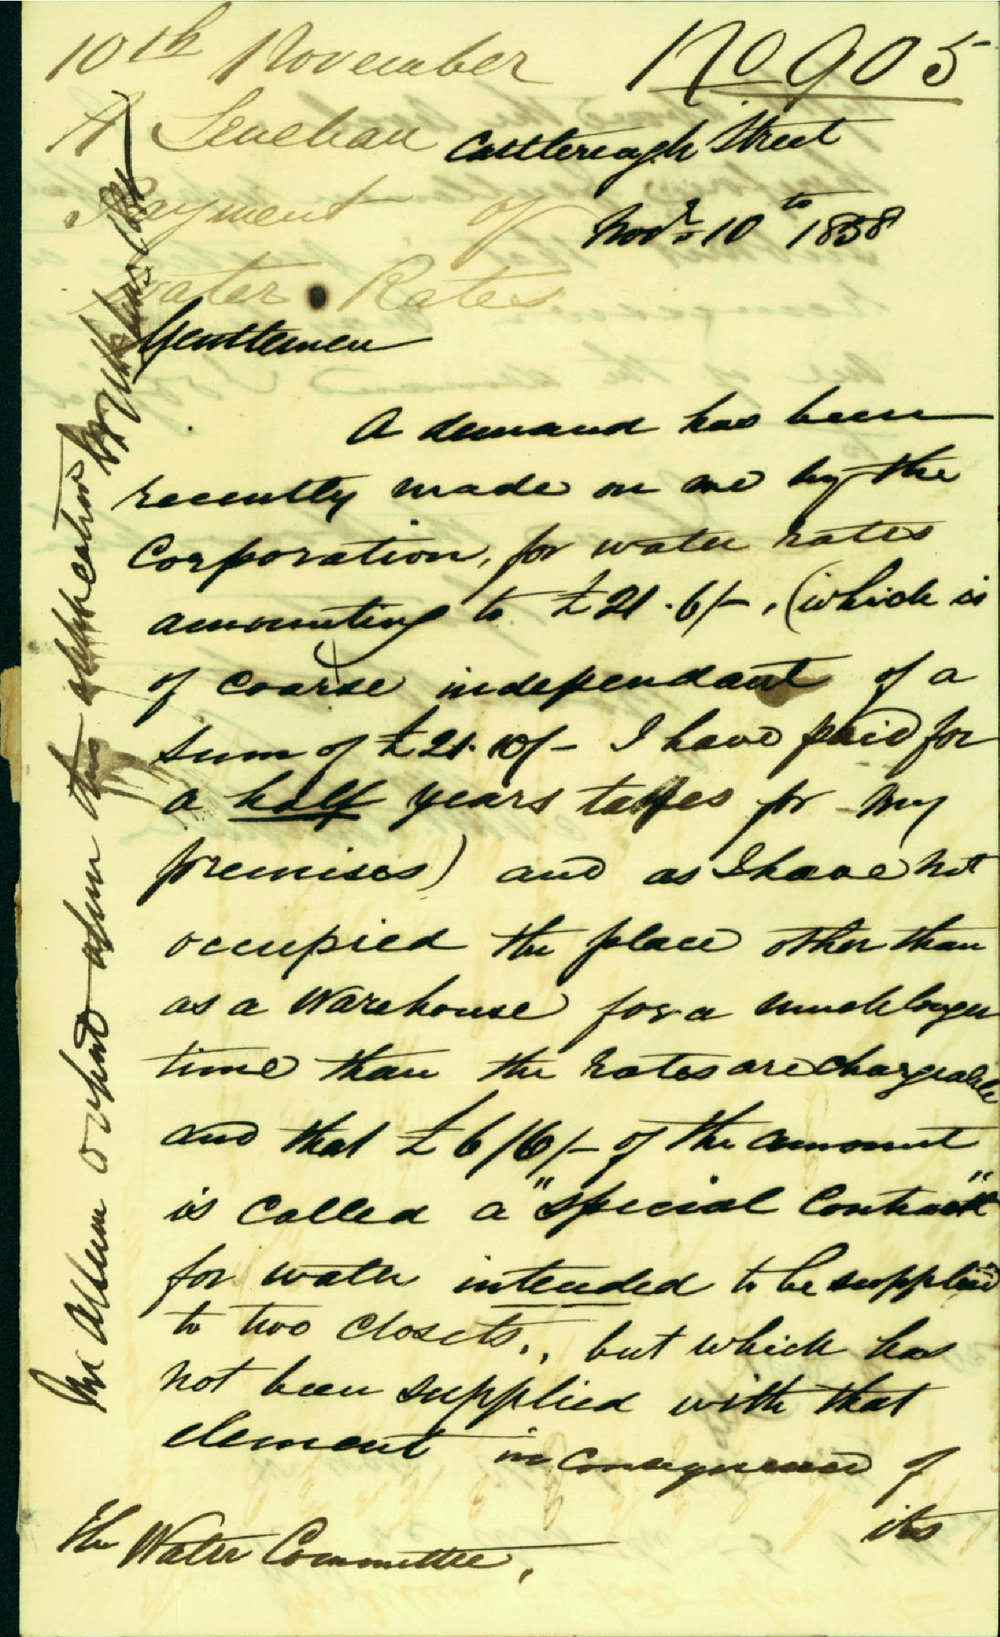 10th November
No 905
A Lenehan
Payment of
Water Rates
Castlereagh Street
Novr 10th 1858
Gentlemen
A demand has been
recently made on me by the
Corporation, for water rates
amounting to £21.6/-, (which is
of coarse independant of a
sum of £21.10/- I have paid for
a half years taxes for my
premises) and as I have not
occupied the place other than
as a Warehouse for a much longer
time than the rates are chargeable
and that £6/6/- of the amount
is called a "special Contract"
for water intended to be supplied
to two closets., but which has
not been supplied with that
element in consequence of
its
The Water Committee,
Mr Allen report upon this application